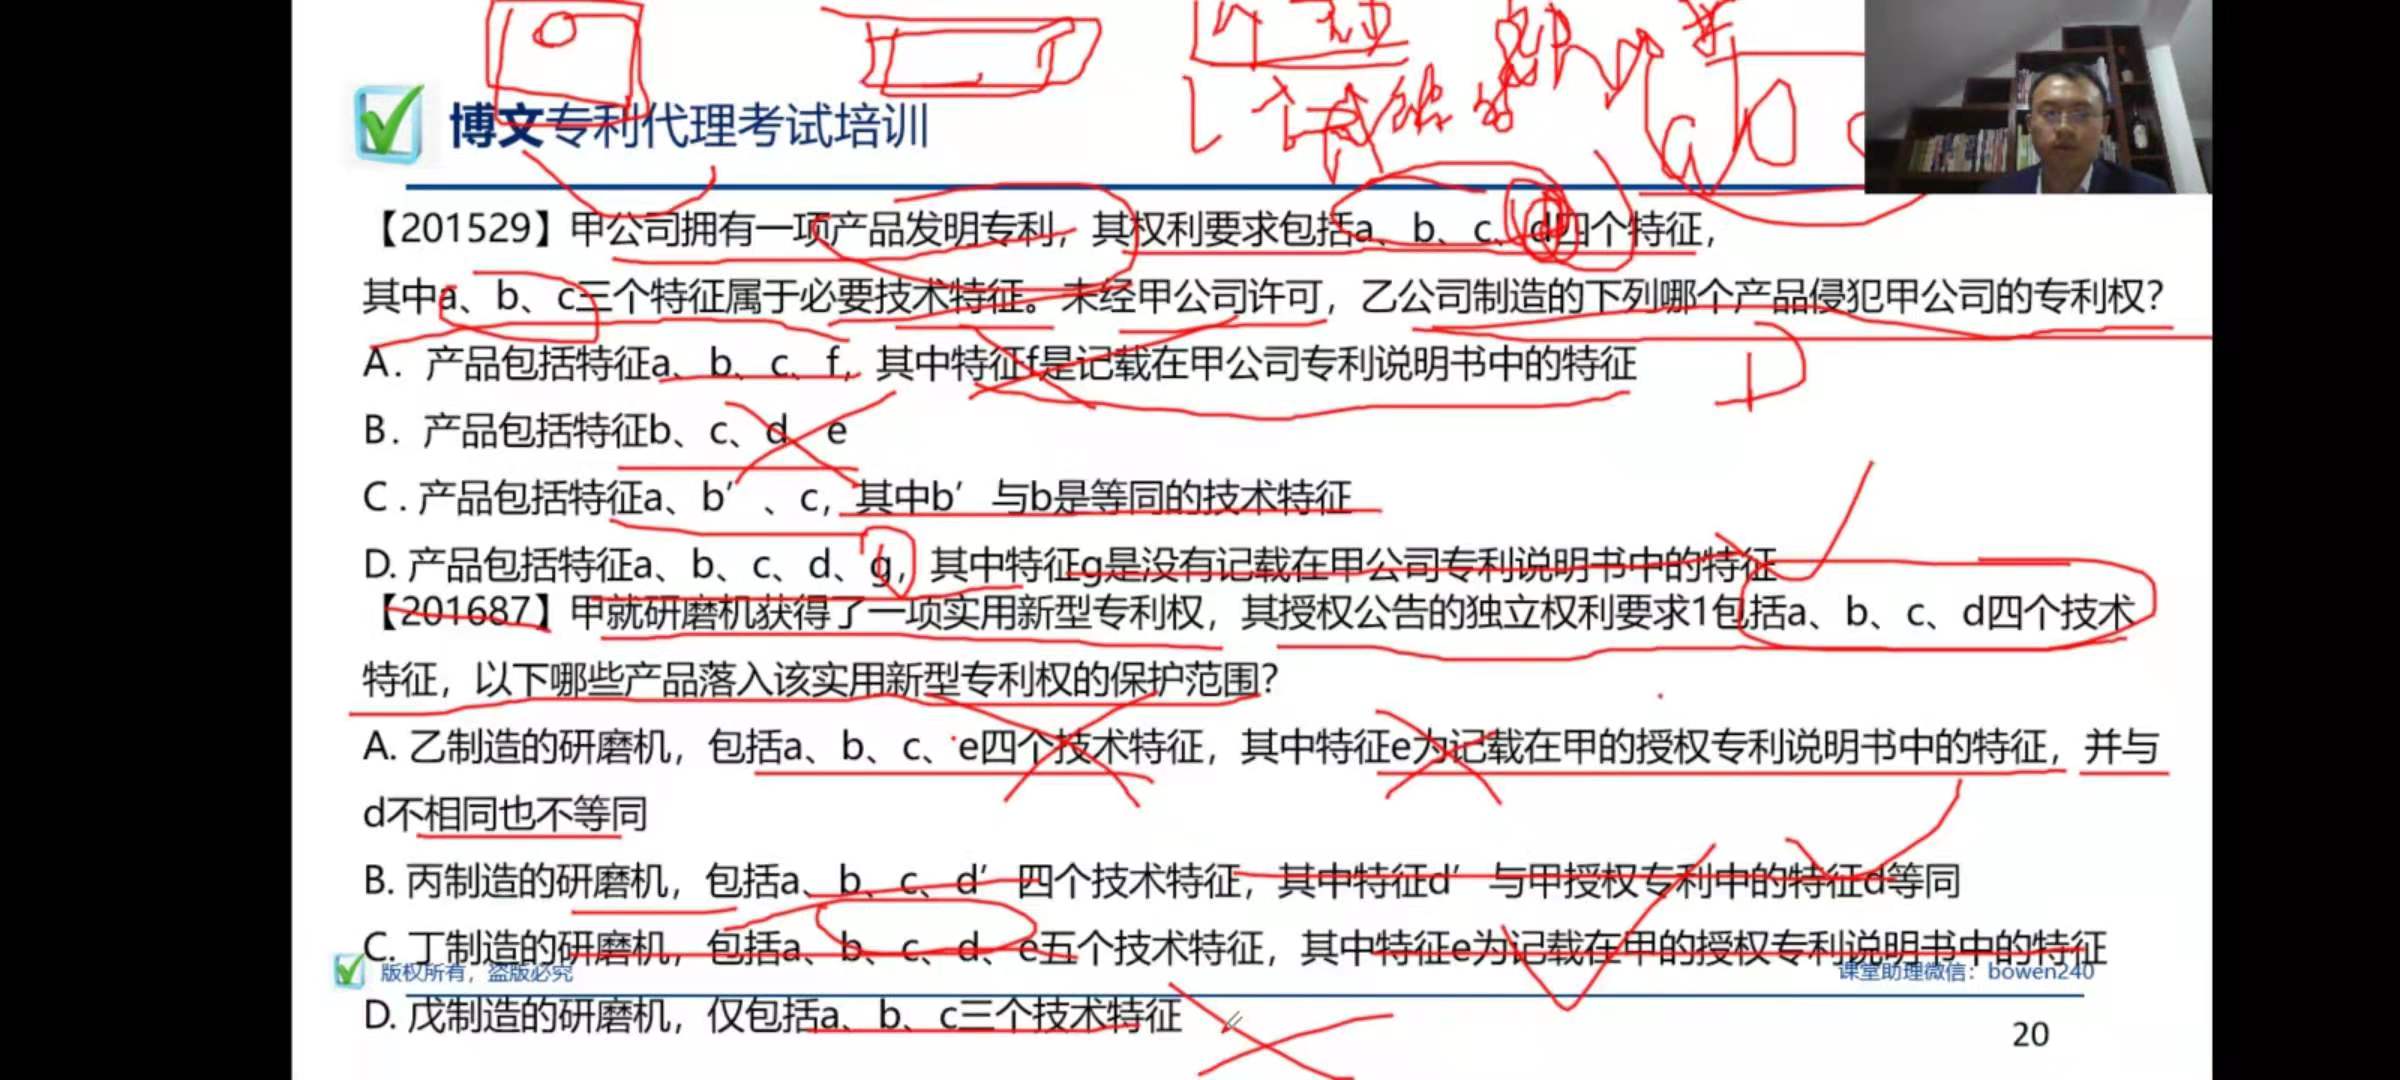 博文专利代理考试培训
【201529】甲公司拥有一项产品发明专利，其权利要求包括a、b、c、d四个特征，
其中a、b、c三个特征属于必要技术特征。未经甲公司许可，乙公司制造的下列哪个产品侵犯甲公司的专利权？
A．产品包括特征a、b、c、f，其中特征f是记载在甲公司专利说明书中的特征
D
B．产品包括特征b、c、d、e
C．产品包括特征a、b′、c，其中b′与b是等同的技术特征
D. 产品包括特征a、b、c、d、g，其中特征g是没有记载在甲公司专利说明书中的特征
【201687】甲就研磨机获得了一项实用新型专利权，其授权公告的独立权利要求1包括a、b、c、d四个技术
特征，以下哪些产品落入该实用新型专利权的保护范围？
A. 乙制造的研磨机，包括a、b、c、e四个技术特征，其中特征e为记载在甲的授权专利说明书中的特征，并与
d不相同也不等同
B. 丙制造的研磨机，包括a、b、c、d′四个技术特征，其中特征d′与甲授权专利中的特征d等同
C. 丁制造的研磨机，包括a、b、c、d、e五个技术特征，其中特征e为记载在甲的授权专利说明书中的特征
版权所有，盗版必究
课堂助理微信：bowen240
D. 戊制造的研磨机，仅包括a、b、c三个技术特征
20